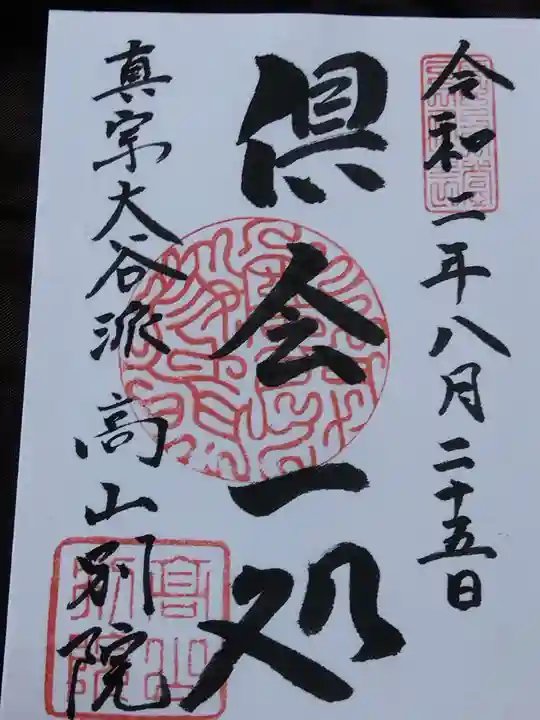 令和二年八月二十五日
倶会一処
真宗大谷派 高山別院
高山別院